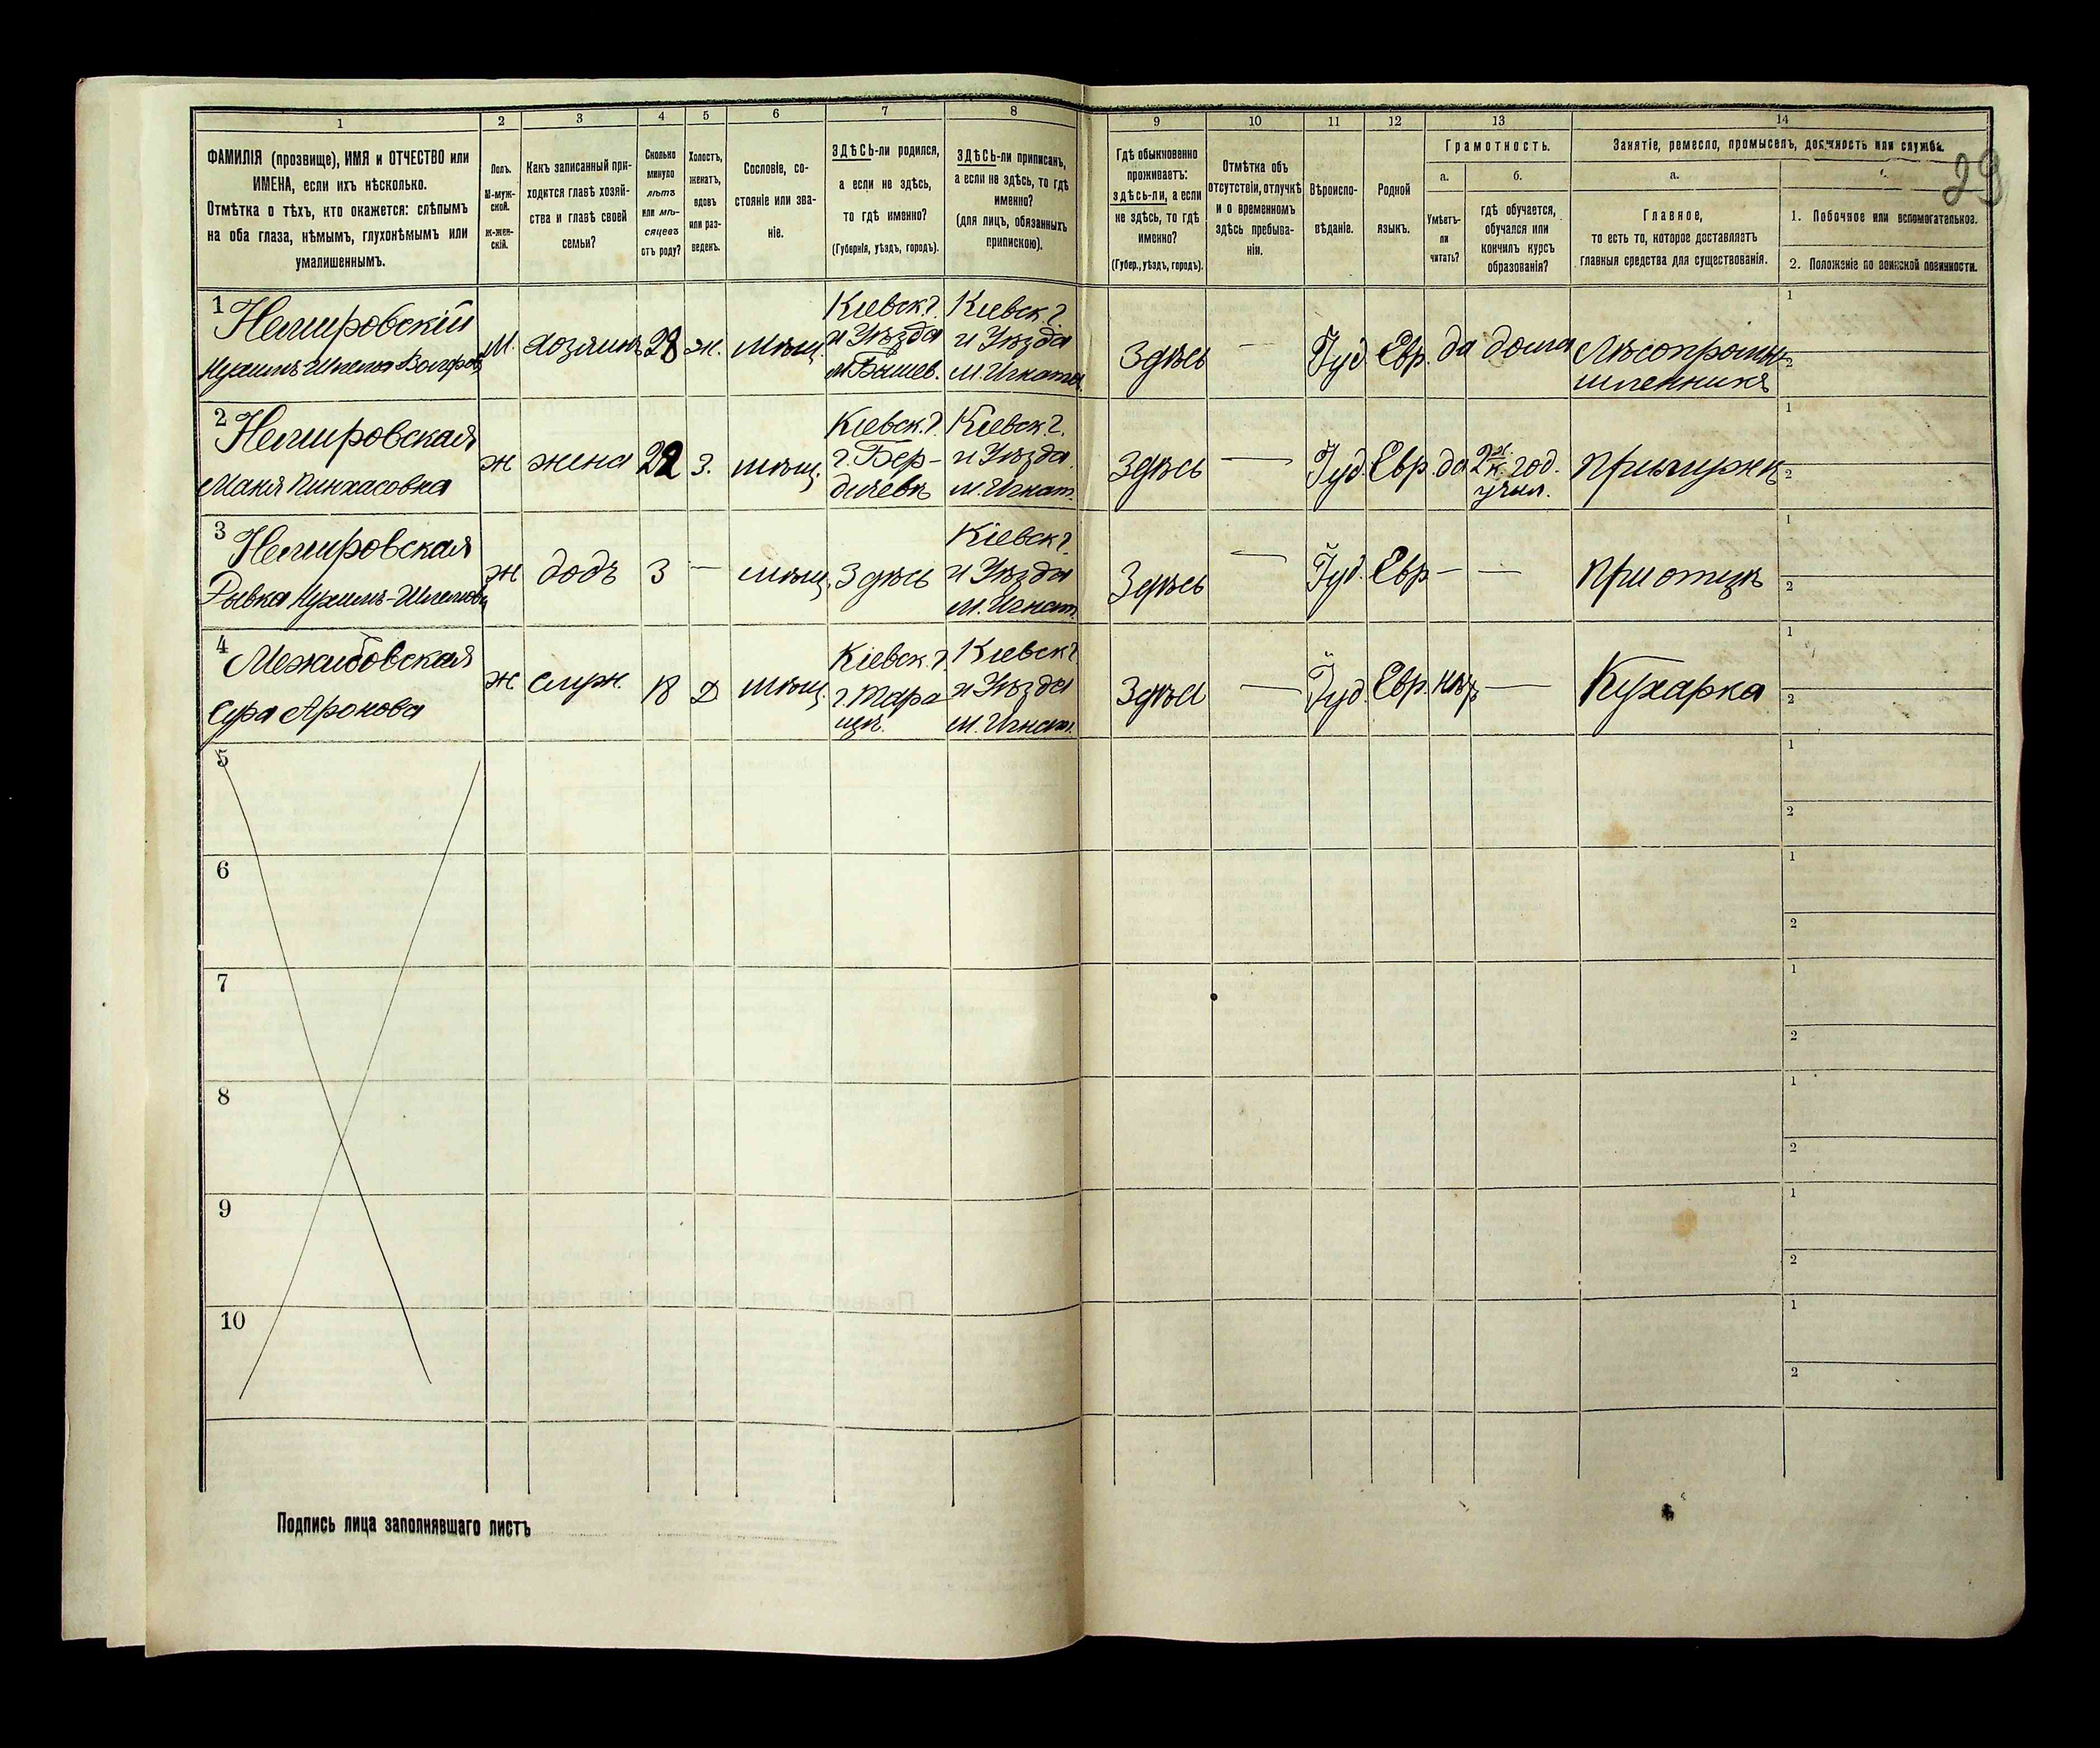 1 2 3 4 5 6 7 8 9 10 11 12 13 14
ФАМИЛІЯ (прозвище), ИМЯ и ОТЧЕСТВО или
ИМЕНА, если ихъ нѣсколько.
Отмѣтка о тѣхъ, кто окажется: слѣпымъ
на оба глаза, нѣмымъ, глухонѣмымъ или
умалишеннымъ.
Полъ.
М-муж-
ской.
Ж-жен-
скій.
Какъ записанный при-
ходится главѣ хозяй-
ства и главѣ своей
семьи?
Сколько
минуло
лѣтъ
или мѣ-
сяцевъ
отъ роду?
Холостъ,
женатъ,
вдовъ
или раз-
веденъ.
Сословіе, со-
стояніе или зва-
ніе.
ЗДѢСЬ-ли родился,
а если не здѣсь,
то гдѣ именно?
(Губернія, уѣздъ, городъ).
ЗДѢСЬ-ли приписанъ,
а если не здѣсь, то гдѣ
именно?
(для лицъ, обязанныхъ
припискою).
Гдѣ обыкновенно
проживаетъ:
здѣсь-ли, а если
не здѣсь, то гдѣ
именно?
(Губер., уѣздъ, городъ).
Отмѣтка объ
отсутствіи, отлучкѣ
и о временномъ
здѣсь пребыва-
ніи.
Вѣроиспо-
вѣданіе.
Родной
языкъ.
Грамотность.
а.
Умѣетъ-
ли
читать?
б.
гдѣ обучается,
обучался или
кончилъ курсъ
образованія?
Занятіе, ремесло, промыселъ, должность или служба.
а.
Главное,
то есть то, которое доставляетъ
главныя средства для существованія.
1. Побочное или вспомогательное.
2. Положеніе по воинской повинности.
29
1 Немировскій
М. хозяинъ 28 ж. мѣщ.
Кіевск. г.
и Уѣзда
м. Бышев.
Кіевск. г.
и Уѣзда
м. Игнатов
Здѣсь — Іуд. Евр. да дома
Лѣсопромы-
шленникъ
1
2
2 Немировская
Маня Пинхасовна
ж жена 22 з. мѣщ.
Кіевск. г.
г. Бер-
дичевъ
Кіевск. г.
и Уѣзда
м. Игнат.
Здѣсь — Іуд. Евр. да
2х к. гор.
учил.
при мужѣ
1
2
3 Немировская
Рывка Нухимъ-Шмелева
ж дочь 3 — мѣщ. Здѣсь
Кіевск г.
и Уѣзда
м. Игнат.
Здѣсь — Іуд. Евр — —
при отцѣ
1
2
4 Межибовская
Сура Аронова
ж служ. 18 д мѣщ.
Кіевск. г.
г. Тара
щѣ.
Кіевск г.
и Уѣзда
м. Игнат.
Здѣсь — Іуд. Евр. нѣтъ —
Кухарка
1
2
5
1
2
6
1
2
7
1
2
8
1
2
9
1
2
10
1
2
Подпись лица заполнявшаго листъ